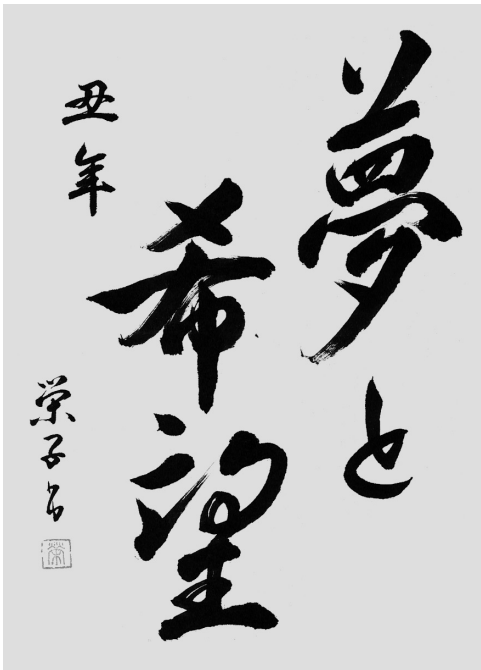 夢と
希望
丑年
栄子書
栄